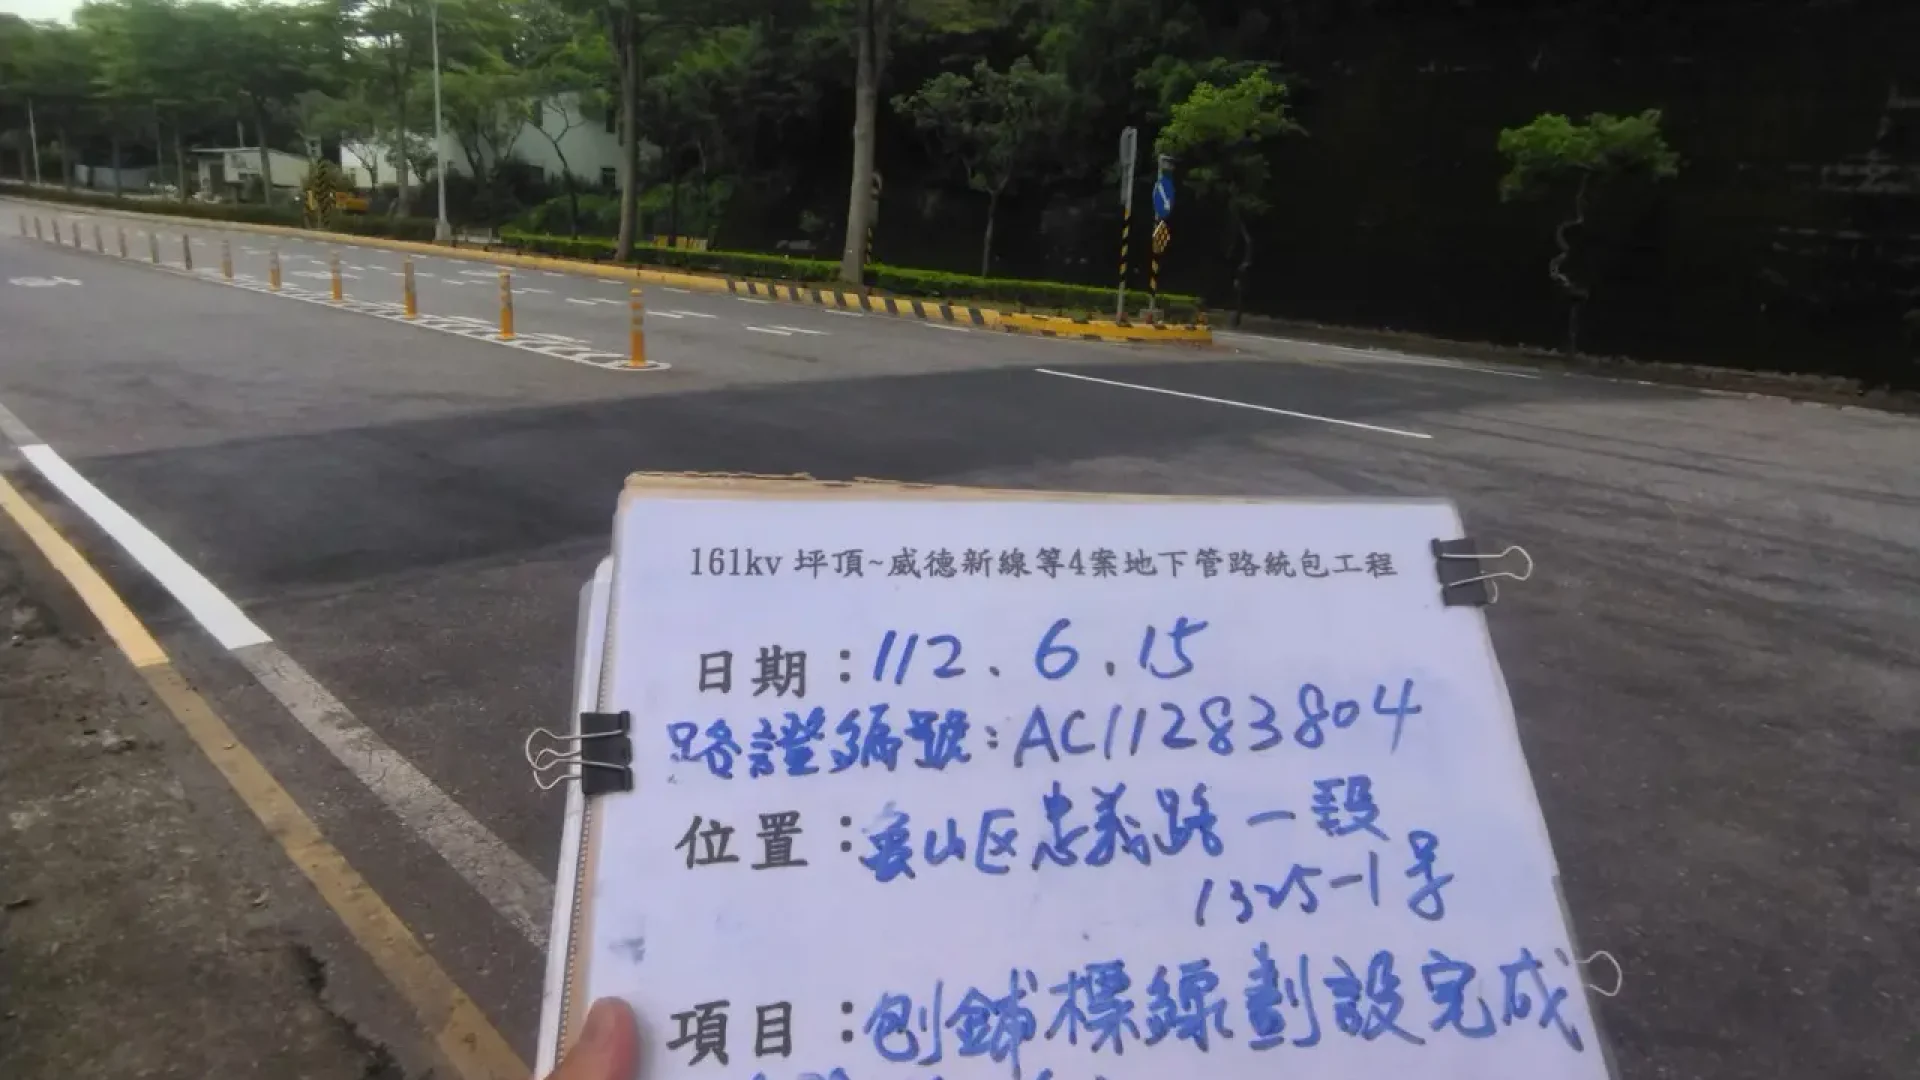 161kv 坪頂~威德新線等4案地下管路統包工程
日期：112.6.15
路證編號：AC11283804
位置：龜山区忠義路一段
1325-1号
項目：刨鋪標線劃設完成